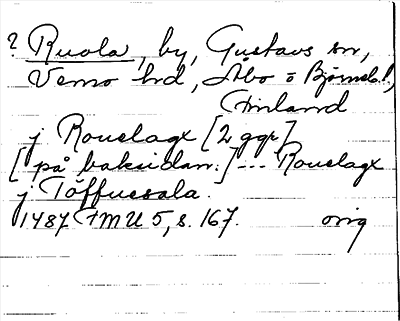 ? Ruola, by, Gustavs sn,
Vemo hd, Åbo o Björnebl,
Finland
j Rouelagx [2 ggr]
[på baksidan:] --- Rouelagx
j Töffuesala.
1487 FMU 5, s. 167. orig